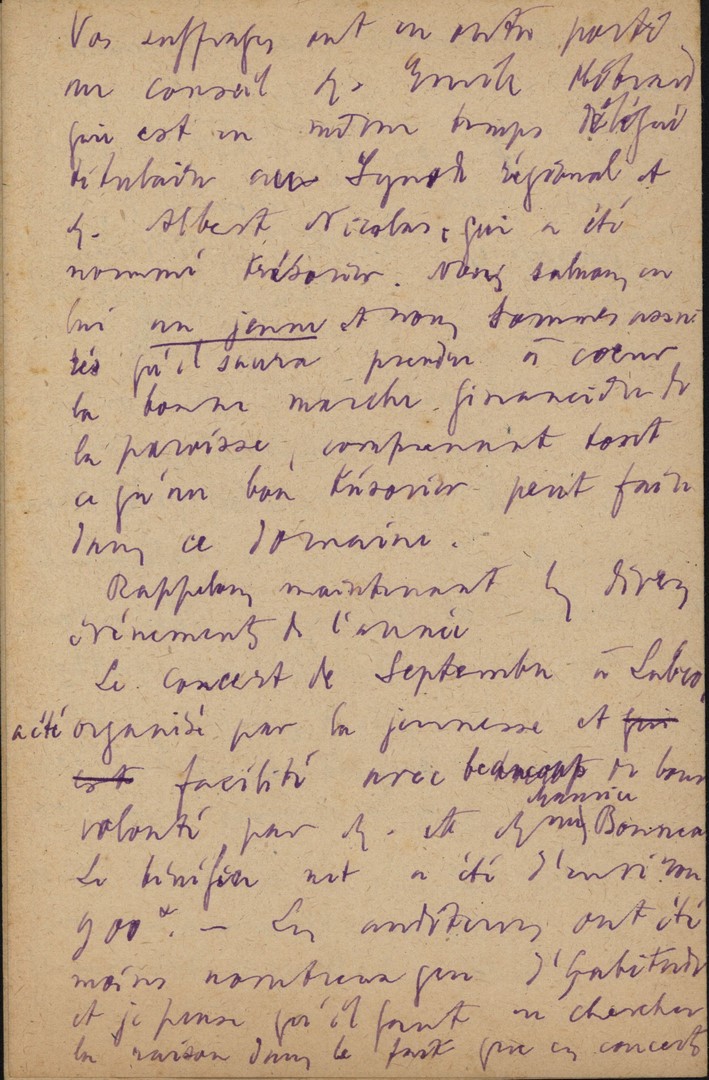 Vos suffrages ont en outre porté
au conseil M. Emile
qui est en même temps délégué
titulaire au Synode régional et
M. Albert Nicolas, qui a été
nommé trésorier. Nous saluons en
lui un jeune et nous sommes assu
rés qu'il saura prendre à coeur
la bonne marche financière de
la paroisse, comprenant tout
ce qu'un bon trésorier peut faire
dans ce domaine.
Rappelons maintenant les divers
événements de l'année
Le concert de Septembre à
a été organisé par la jeunesse et qui
est facilité avec beaucoup de bonne
Maurice
volonté, par M. et Mme
Le bénéfice net a été d'environ
900f. — Les auditeurs ont été
moins nombreux que d'habitude
et je pense qu'il faut en chercher
la raison dans le fait que ces concerts